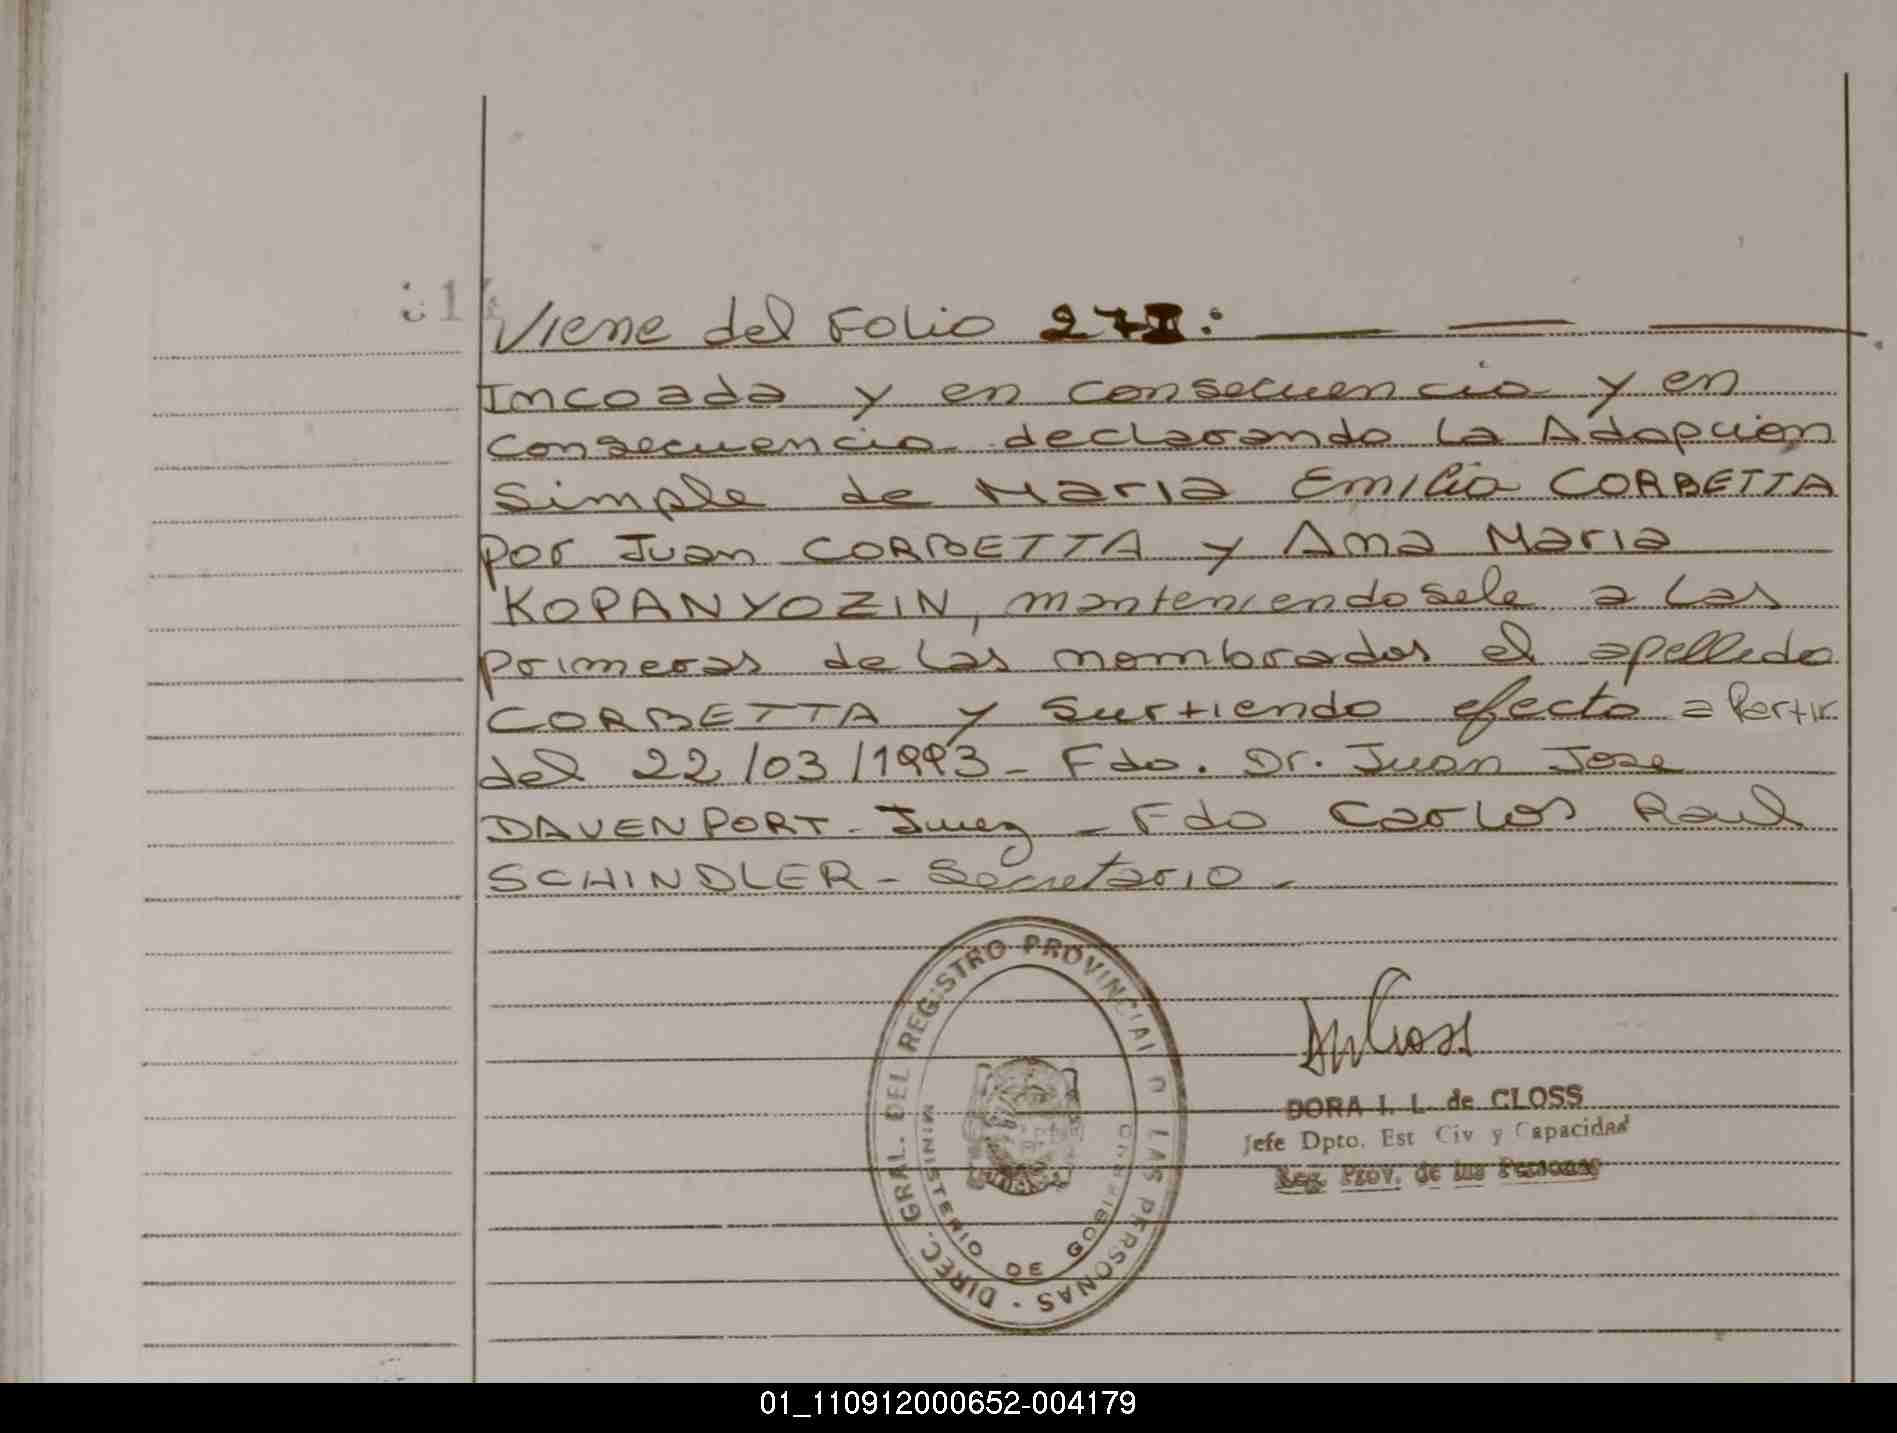 Viene del Folio 271:
Incoada y en consecuencia y en
consecuencia declarando la Adopcion
Simple de Maria Emilia CORBETTA
por Juan CORBETTA y Ana Maria
KOPANYOZIN, manteniendosele a las
primeras de las nombrados el apellido
CORBETTA y surtiendo efecto a Partir
del 22/03/1993- Fdo. Dr. Juan Jose
DAVENPORT- Juez - Fdo Carlos Raul
SCHINDLER- Secretario-
DIREC. GRAL. DEL REGISTRO PROVINCIAL D LAS PERSONAS
MINISTERIO DE GOBIERNO
DORA I. L. de CLOSS
Jefe Dpto. Est Civ y Capacidad
Reg. Prov. de las Personas
01_110912000652-004179